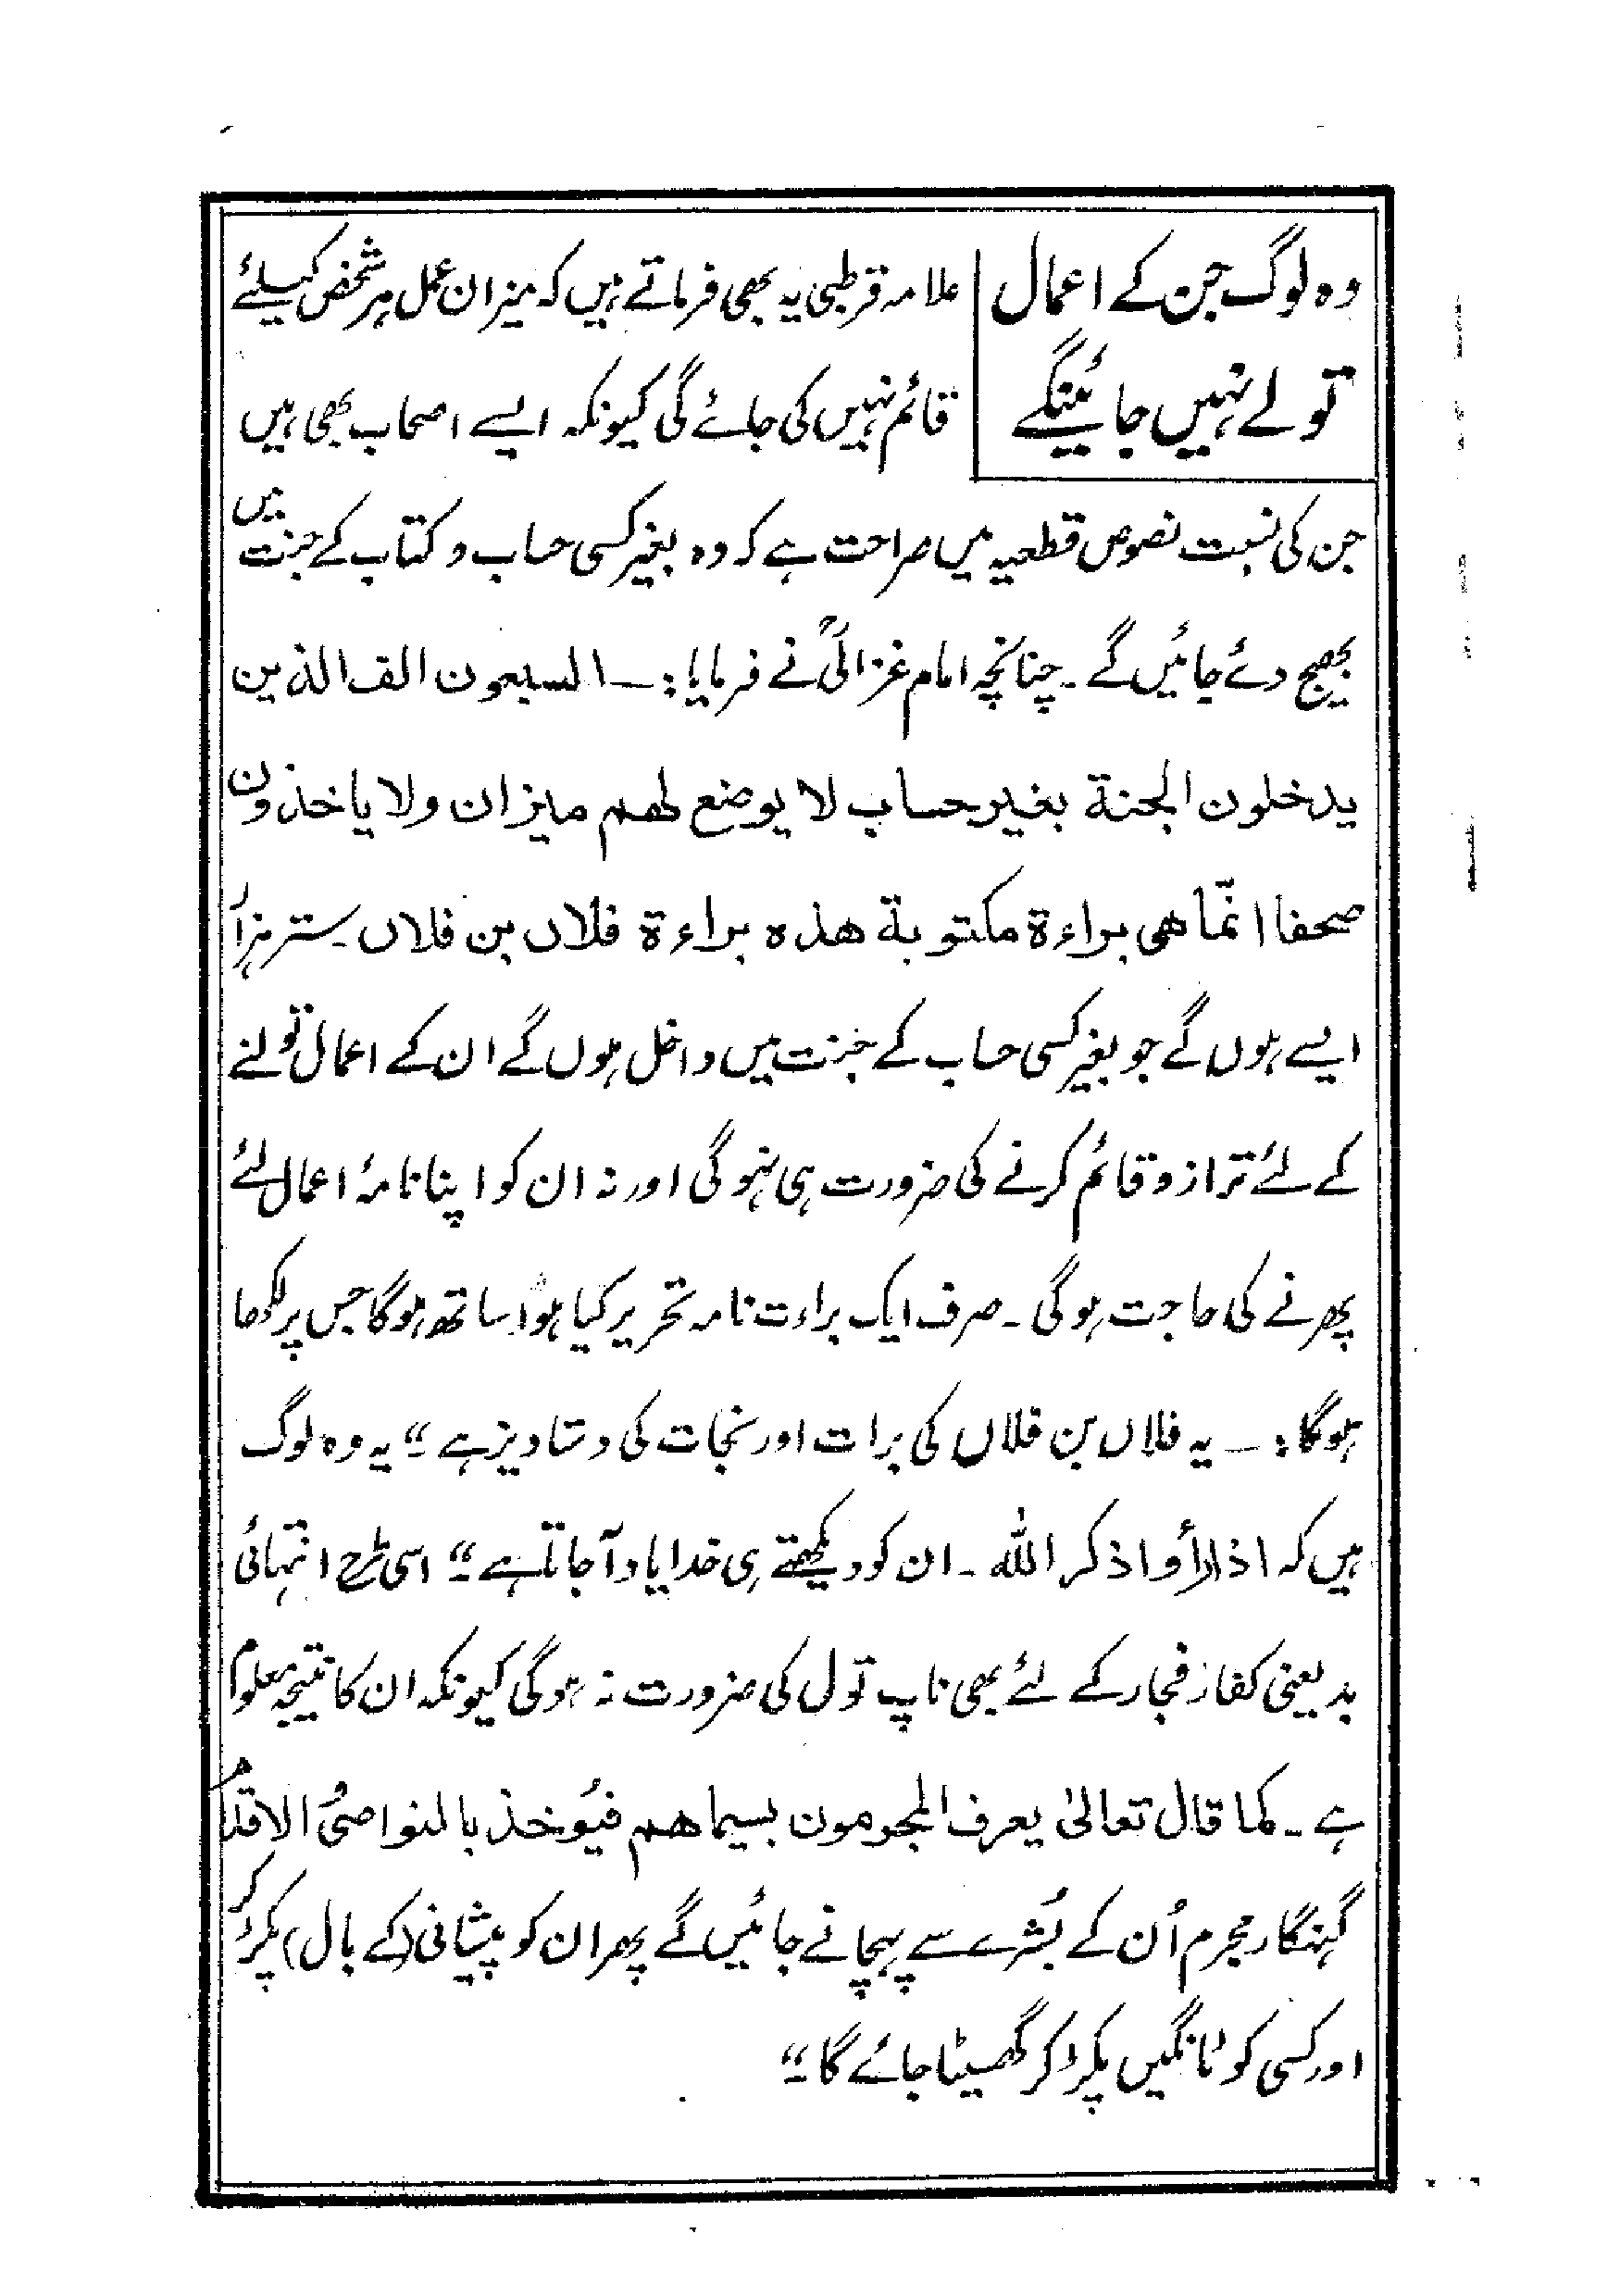 وہ لوگ جن کے اعمال
تولے نہیں جائینگے
علامہ قرطبی یہ بھی فرماتے ہیں کہ میزان عمل ہر شخص کیلئے
قائم نہیں کی جائے گی کیونکہ ایسے اصحاب بھی ہیں
جن کی نسبت نصوص قطعیہ میں صراحت ہے کہ وہ بغیر کسی حساب و کتاب کے جنت میں
بھیج دئے جائیں گے۔ چنانچہ امام غزالیؒ نے فرمایا:۔ السبعون الف الذین
یدخلون الجنة بغیر حساب لا یوضع لھم میزان ولا یاخذون
صحفا انّما ھی براءة مکتوبة ھذہ براءة فلاں بن فلاں۔ ستر ہزار
ایسے ہوں گے جو بغیر کسی حساب کے جنت میں داخل ہوں گے ان کے اعمال تولنے
کے لئے ترازو قائم کرنے کی ضرورت ہی نہوگی اور نہ ان کو اپنا نامۂ اعمال لئے
پھرنے کی حاجت ہوگی۔ صرف ایک براءت نامہ تحریر کیا ہوا ساتھ ہوگا جس پر لکھا
ہوگا:۔ یہ فلاں بن فلاں کی برات اور نجات کی دستاویز ہے“ یہ وہ لوگ
ہیں کہ اذا رأوا ذکر اللہ۔ ان کو دیکھتے ہی خدا یاد آجاتا ہے“ اسی طرح انتہائی
بد یعنی کفار فجار کے لئے بھی ناپ تول کی ضرورت نہ ہوگی کیونکہ ان کا نتیجہ معلوم
ہے۔ کما قال تعالیٰ یعرف المجرمون بسیماھم فیُوخذ بالنواصی و الاقدام
گنہگار مجرم اُن کے بُشرے سے پہچانے جائیں گے پھر ان کو پیشانی (کے بال) پکڑ کر
اور کسی کو ٹانگیں پکڑ کر گھسیٹا جائے گا“